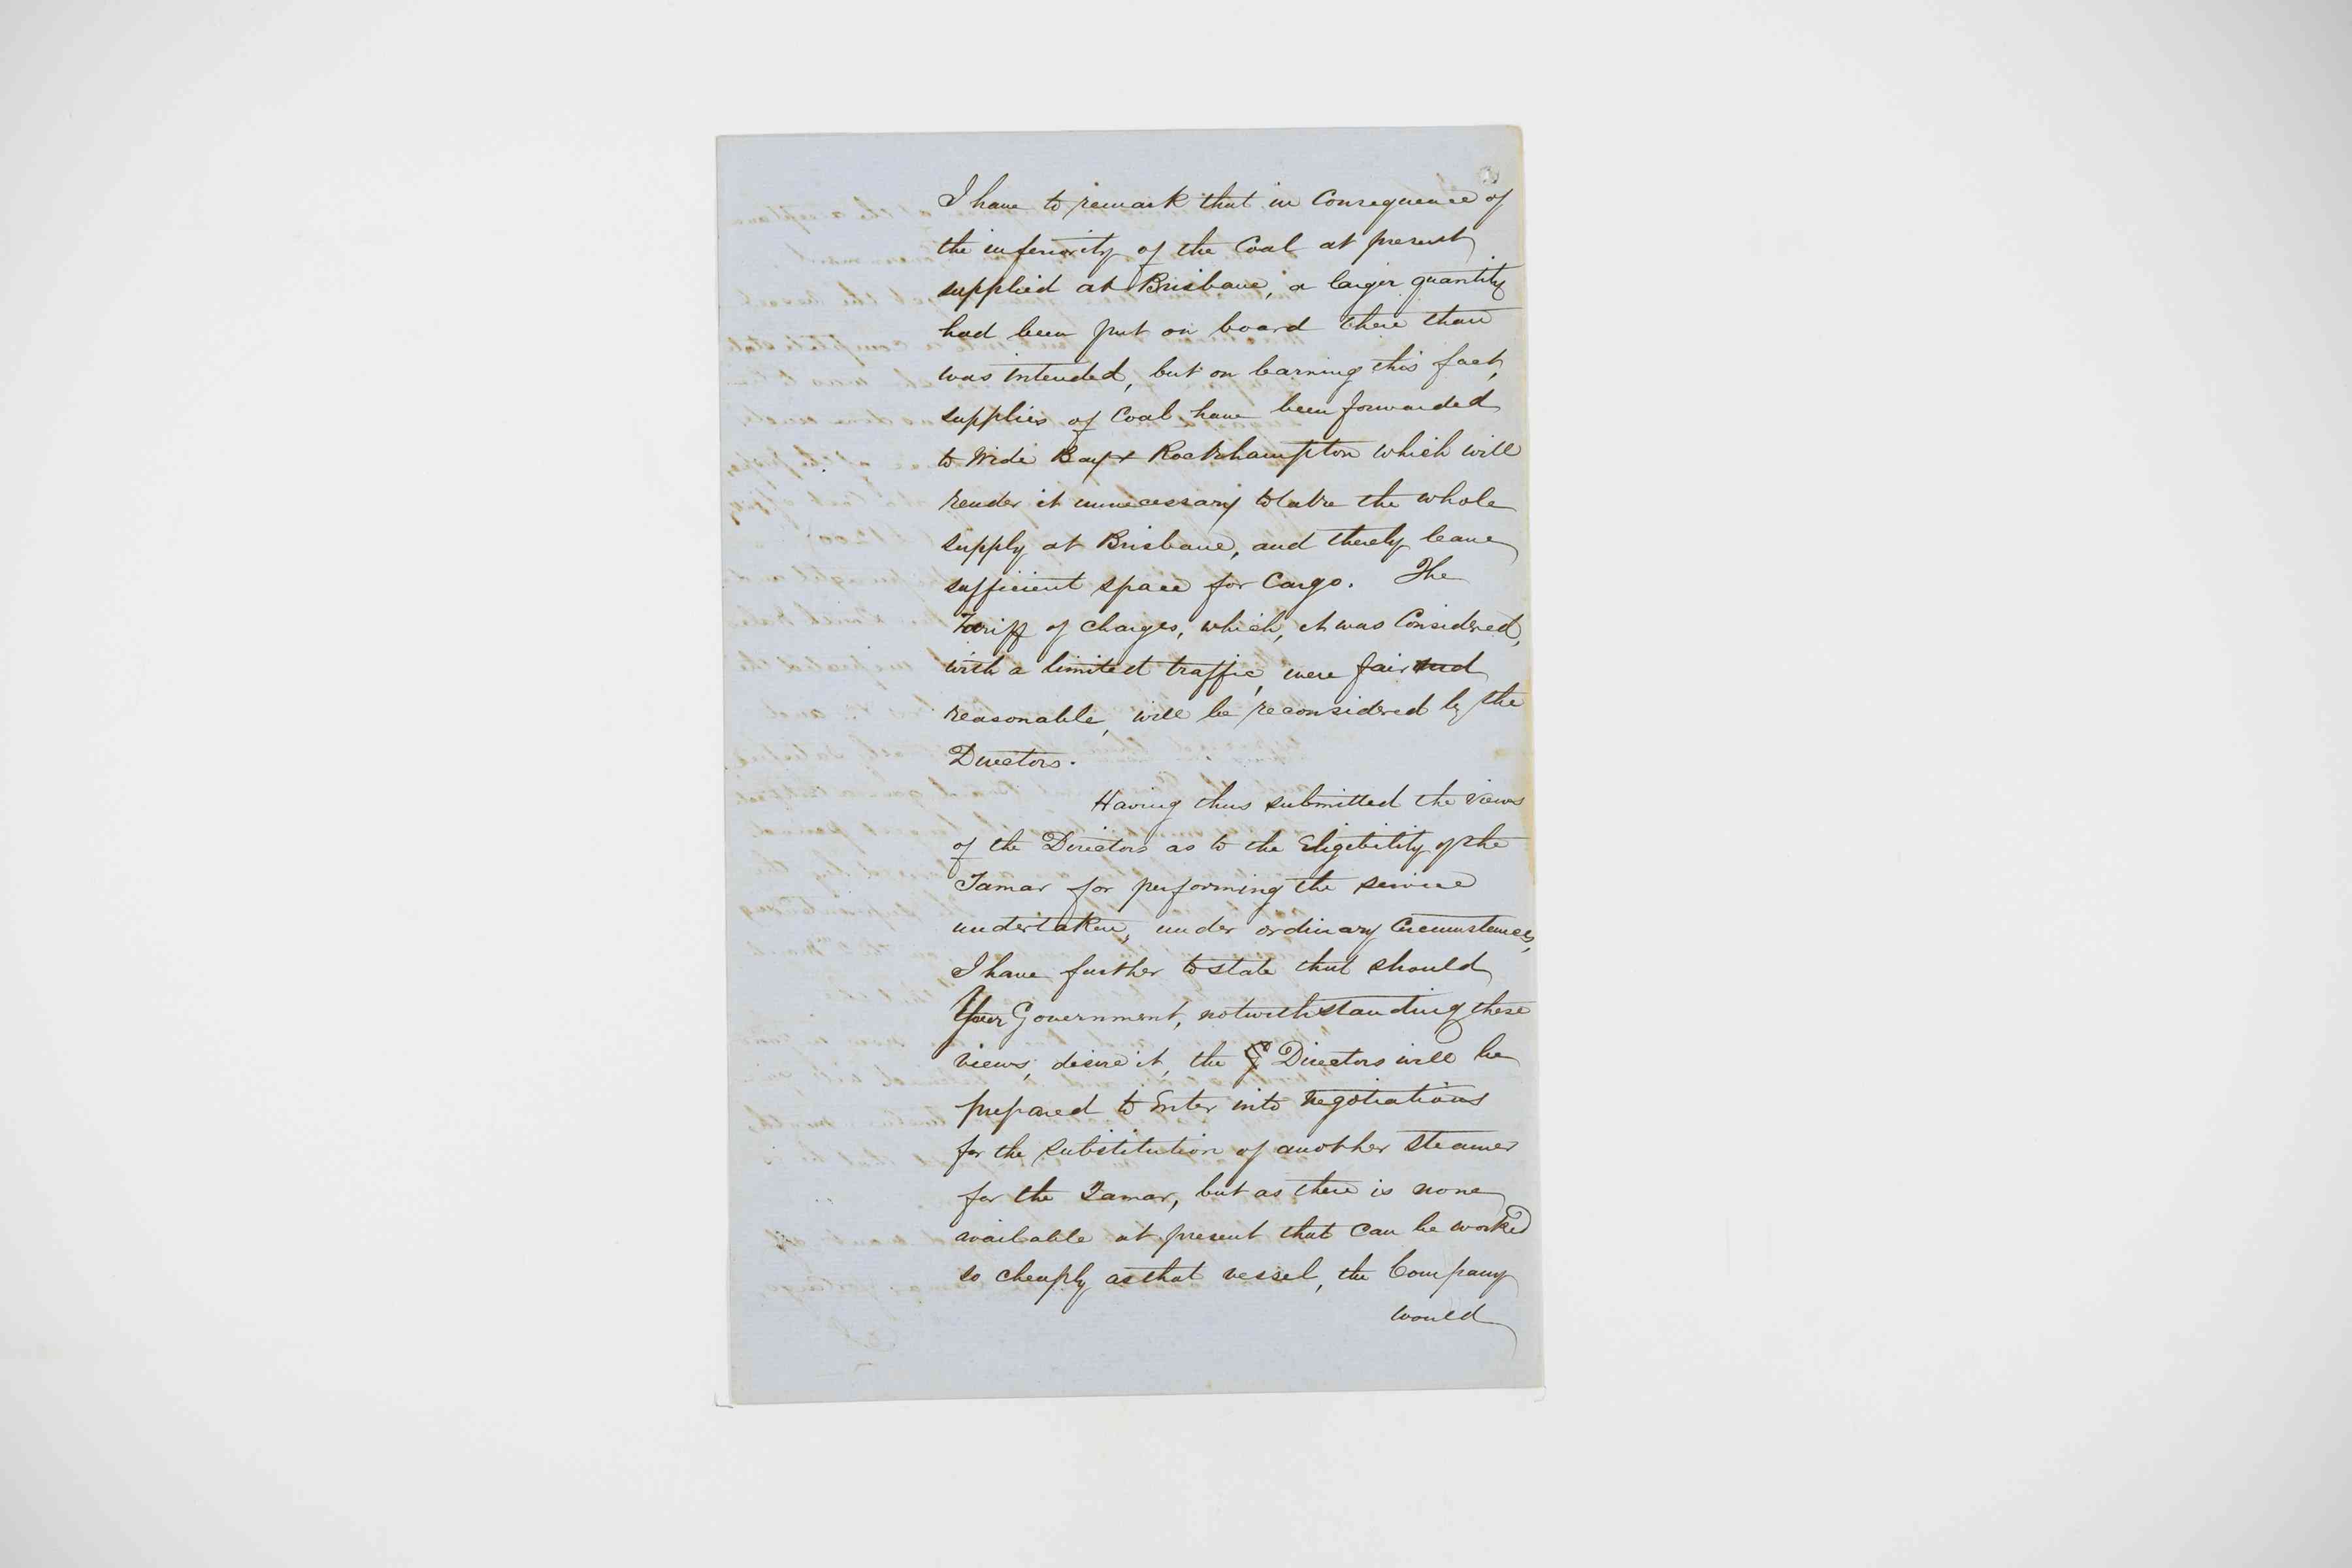 I have to remark that in Consequence of
the inferiority of the Coal at present
supplied at Brisbane, a larger quantity
had been put on board there than
was intended, but on learning this fact,
supplies of Coal have been forwarded
to Wide Bay & Rockhampton which will
render it unnecessary to take the whole
supply at Brisbane, and thereby leave
sufficient space for Cargo. The
Tariff of Charges, which, it was Considered,
with a limited traffic, were fair and
reasonable, will be reconsidered by the
Directors.
Having thus submitted the views
of the Directors as to the Eligibility of the
Tamar for performing the service
undertaken, under ordinary Circumstances,
I have further to state that should
Your Government, notwithstanding these
views, desire it, the Directors will be
prepared to Enter into negotiations
for the substitution of another Steamer
for the Tamar, but as there is none
available at present that Can be worked
so cheaply as that vessel, the Company
would